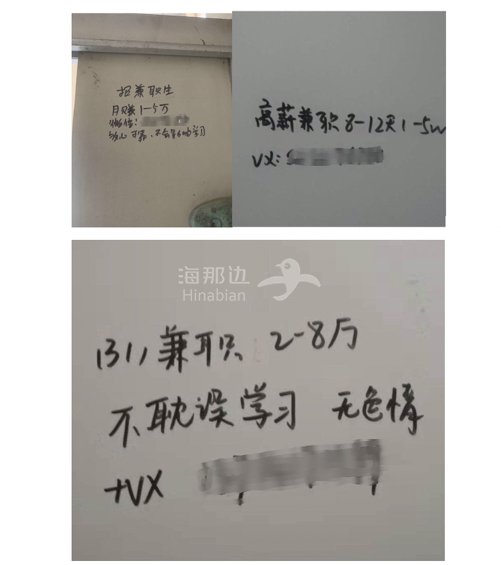 招兼职生
月赚1-5万
微信:
可靠、不会影响学习
高薪兼职8-12天1-5w
VX:
海那边
Hinabian
兼职 2-8万
不耽误学习 无色情
+VX